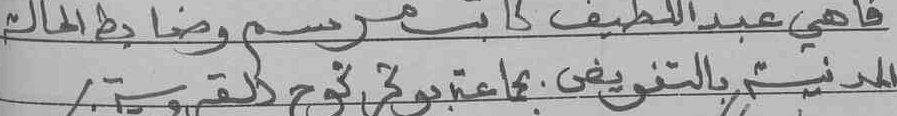 فاهي عبد اللطيف كاتب مرسم وضابط الحالة
المدنية بالتفويض. جماعة بوتخوج القروية./